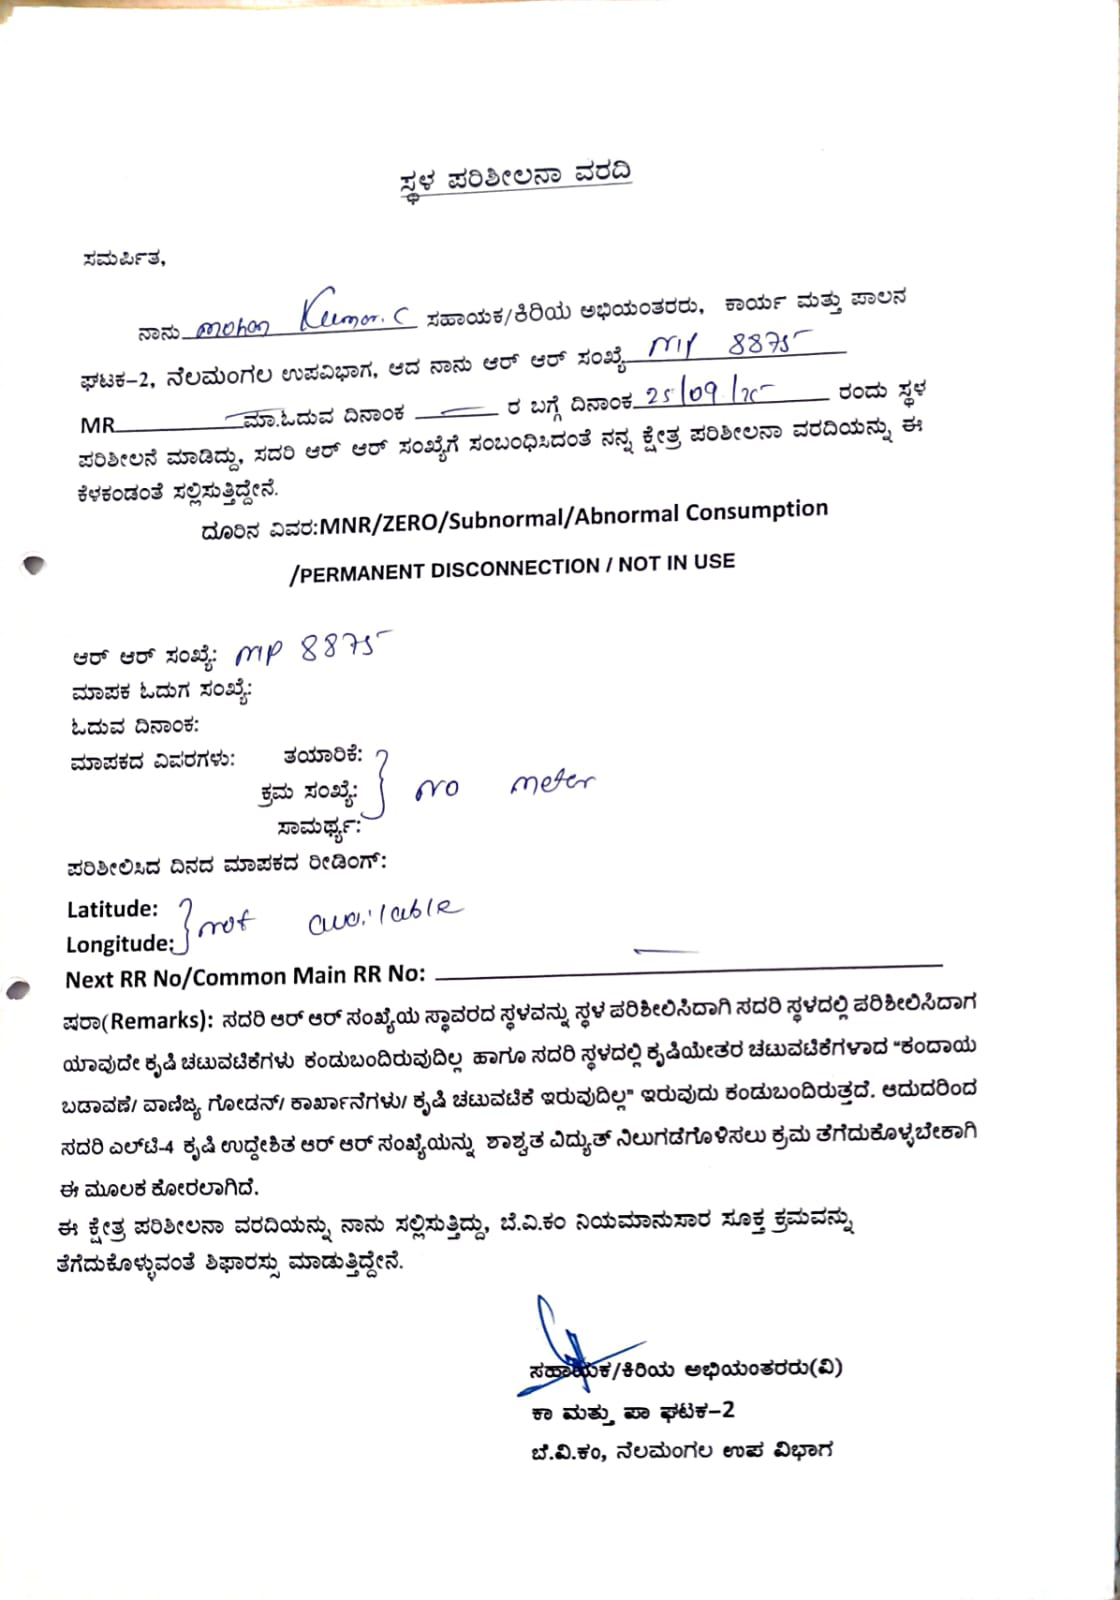 ಸ್ಥಳ ಪರಿಶೀಲನಾ ವರದಿ
ಸಮರ್ಪಿತ,
ನಾನು mohan Kumar. C ಸಹಾಯಕ/ಕಿರಿಯ ಅಭಿಯಂತರರು, ಕಾರ್ಯ ಮತ್ತು ಪಾಲನ
ಘಟಕ–2, ನೆಲಮಂಗಲ ಉಪವಿಭಾಗ, ಆದ ನಾನು ಆರ್ ಆರ್ ಸಂಖ್ಯೆ MP 8875
MR ಮಾ.ಓದುವ ದಿನಾಂಕ ರ ಬಗ್ಗೆ ದಿನಾಂಕ 25/09/25 ರಂದು ಸ್ಥಳ
ಪರಿಶೀಲನೆ ಮಾಡಿದ್ದು, ಸದರಿ ಆರ್ ಆರ್ ಸಂಖ್ಯೆಗೆ ಸಂಬಂಧಿಸಿದಂತೆ ನನ್ನ ಕ್ಷೇತ್ರ ಪರಿಶೀಲನಾ ವರದಿಯನ್ನು ಈ
ಕೆಳಕಂಡಂತೆ ಸಲ್ಲಿಸುತ್ತಿದ್ದೇನೆ.
ದೂರಿನ ವಿವರ:MNR/ZERO/Subnormal/Abnormal Consumption
/PERMANENT DISCONNECTION / NOT IN USE
ಆರ್ ಆರ್ ಸಂಖ್ಯೆ: MP 8875
ಮಾಪಕ ಓದುಗ ಸಂಖ್ಯೆ:
ಓದುವ ದಿನಾಂಕ:
ಮಾಪಕದ ವಿವರಗಳು: ತಯಾರಿಕೆ:
ಕ್ರಮ ಸಂಖ್ಯೆ: no meter
ಸಾಮರ್ಥ್ಯ:
ಪರಿಶೀಲಿಸಿದ ದಿನದ ಮಾಪಕದ ರೀಡಿಂಗ್:
Latitude:
Longitude: not available
Next RR No/Common Main RR No:
ಷರಾ(Remarks): ಸದರಿ ಆರ್ ಆರ್ ಸಂಖ್ಯೆಯ ಸ್ಥಾವರದ ಸ್ಥಳವನ್ನು ಸ್ಥಳ ಪರಿಶೀಲಿಸಿದಾಗಿ ಸದರಿ ಸ್ಥಳದಲ್ಲಿ ಪರಿಶೀಲಿಸಿದಾಗ
ಯಾವುದೇ ಕೃಷಿ ಚಟುವಟಿಕೆಗಳು ಕಂಡುಬಂದಿರುವುದಿಲ್ಲ ಹಾಗೂ ಸದರಿ ಸ್ಥಳದಲ್ಲಿ ಕೃಷಿಯೇತರ ಚಟುವಟಿಕೆಗಳಾದ "ಕಂದಾಯ
ಬಡಾವಣೆ/ ವಾಣಿಜ್ಯ ಗೋಡನ್/ ಕಾರ್ಖಾನೆಗಳು/ ಕೃಷಿ ಚಟುವಟಿಕೆ ಇರುವುದಿಲ್ಲ" ಇರುವುದು ಕಂಡುಬಂದಿರುತ್ತದೆ. ಆದುದರಿಂದ
ಸದರಿ ಎಲ್‌ಟಿ-4 ಕೃಷಿ ಉದ್ದೇಶಿತ ಆರ್ ಆರ್ ಸಂಖ್ಯೆಯನ್ನು ಶಾಶ್ವತ ವಿದ್ಯುತ್ ನಿಲುಗಡೆಗೊಳಿಸಲು ಕ್ರಮ ತೆಗೆದುಕೊಳ್ಳಬೇಕಾಗಿ
ಈ ಮೂಲಕ ಕೋರಲಾಗಿದೆ.
ಈ ಕ್ಷೇತ್ರ ಪರಿಶೀಲನಾ ವರದಿಯನ್ನು ನಾನು ಸಲ್ಲಿಸುತ್ತಿದ್ದು, ಬೆ.ವಿ.ಕಂ ನಿಯಮಾನುಸಾರ ಸೂಕ್ತ ಕ್ರಮವನ್ನು
ತೆಗೆದುಕೊಳ್ಳುವಂತೆ ಶಿಫಾರಸ್ಸು ಮಾಡುತ್ತಿದ್ದೇನೆ.
ಸಹಾಯಕ/ಕಿರಿಯ ಅಭಿಯಂತರರು(ವಿ)
ಕಾ ಮತ್ತು ಪಾ ಘಟಕ–2
ಬೆ.ವಿ.ಕಂ, ನೆಲಮಂಗಲ ಉಪ ವಿಭಾಗ